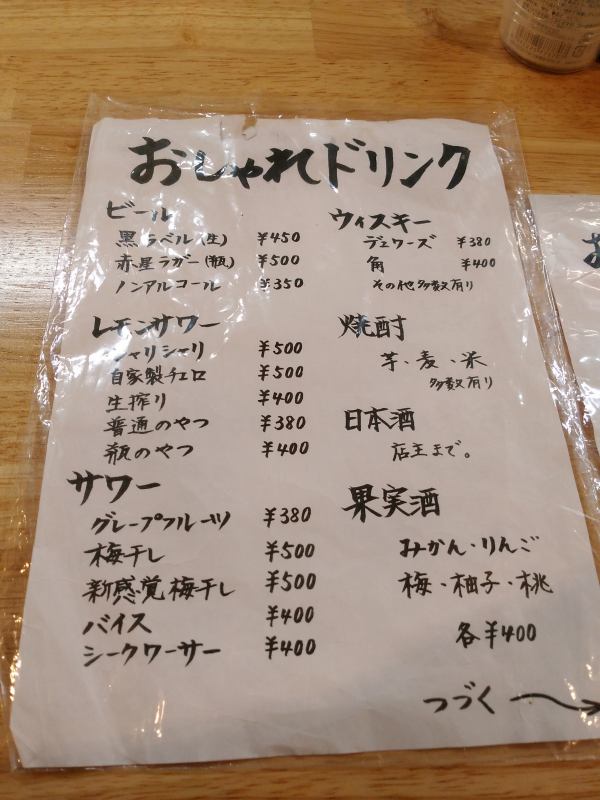 おしゃれドリンク
ビール
黒ラベル(生) ¥450
赤星ラガー(瓶) ¥500
ノンアルコール ¥350
レモンサワー
シャリシャリ ¥500
自家製チェロ ¥500
生搾り ¥400
普通のやつ ¥380
瓶のやつ ¥400
サワー
グレープフルーツ ¥380
梅干し ¥500
新感覚梅干し ¥500
バイス ¥400
シークワーサー ¥400
ウィスキー
デュワーズ ¥380
角 ¥400
その他多数有り
焼酎
芋・麦・米
多数有り
日本酒
店主まで。
果実酒
みかん・りんご
梅・柚子・桃
各¥400
つづく
お